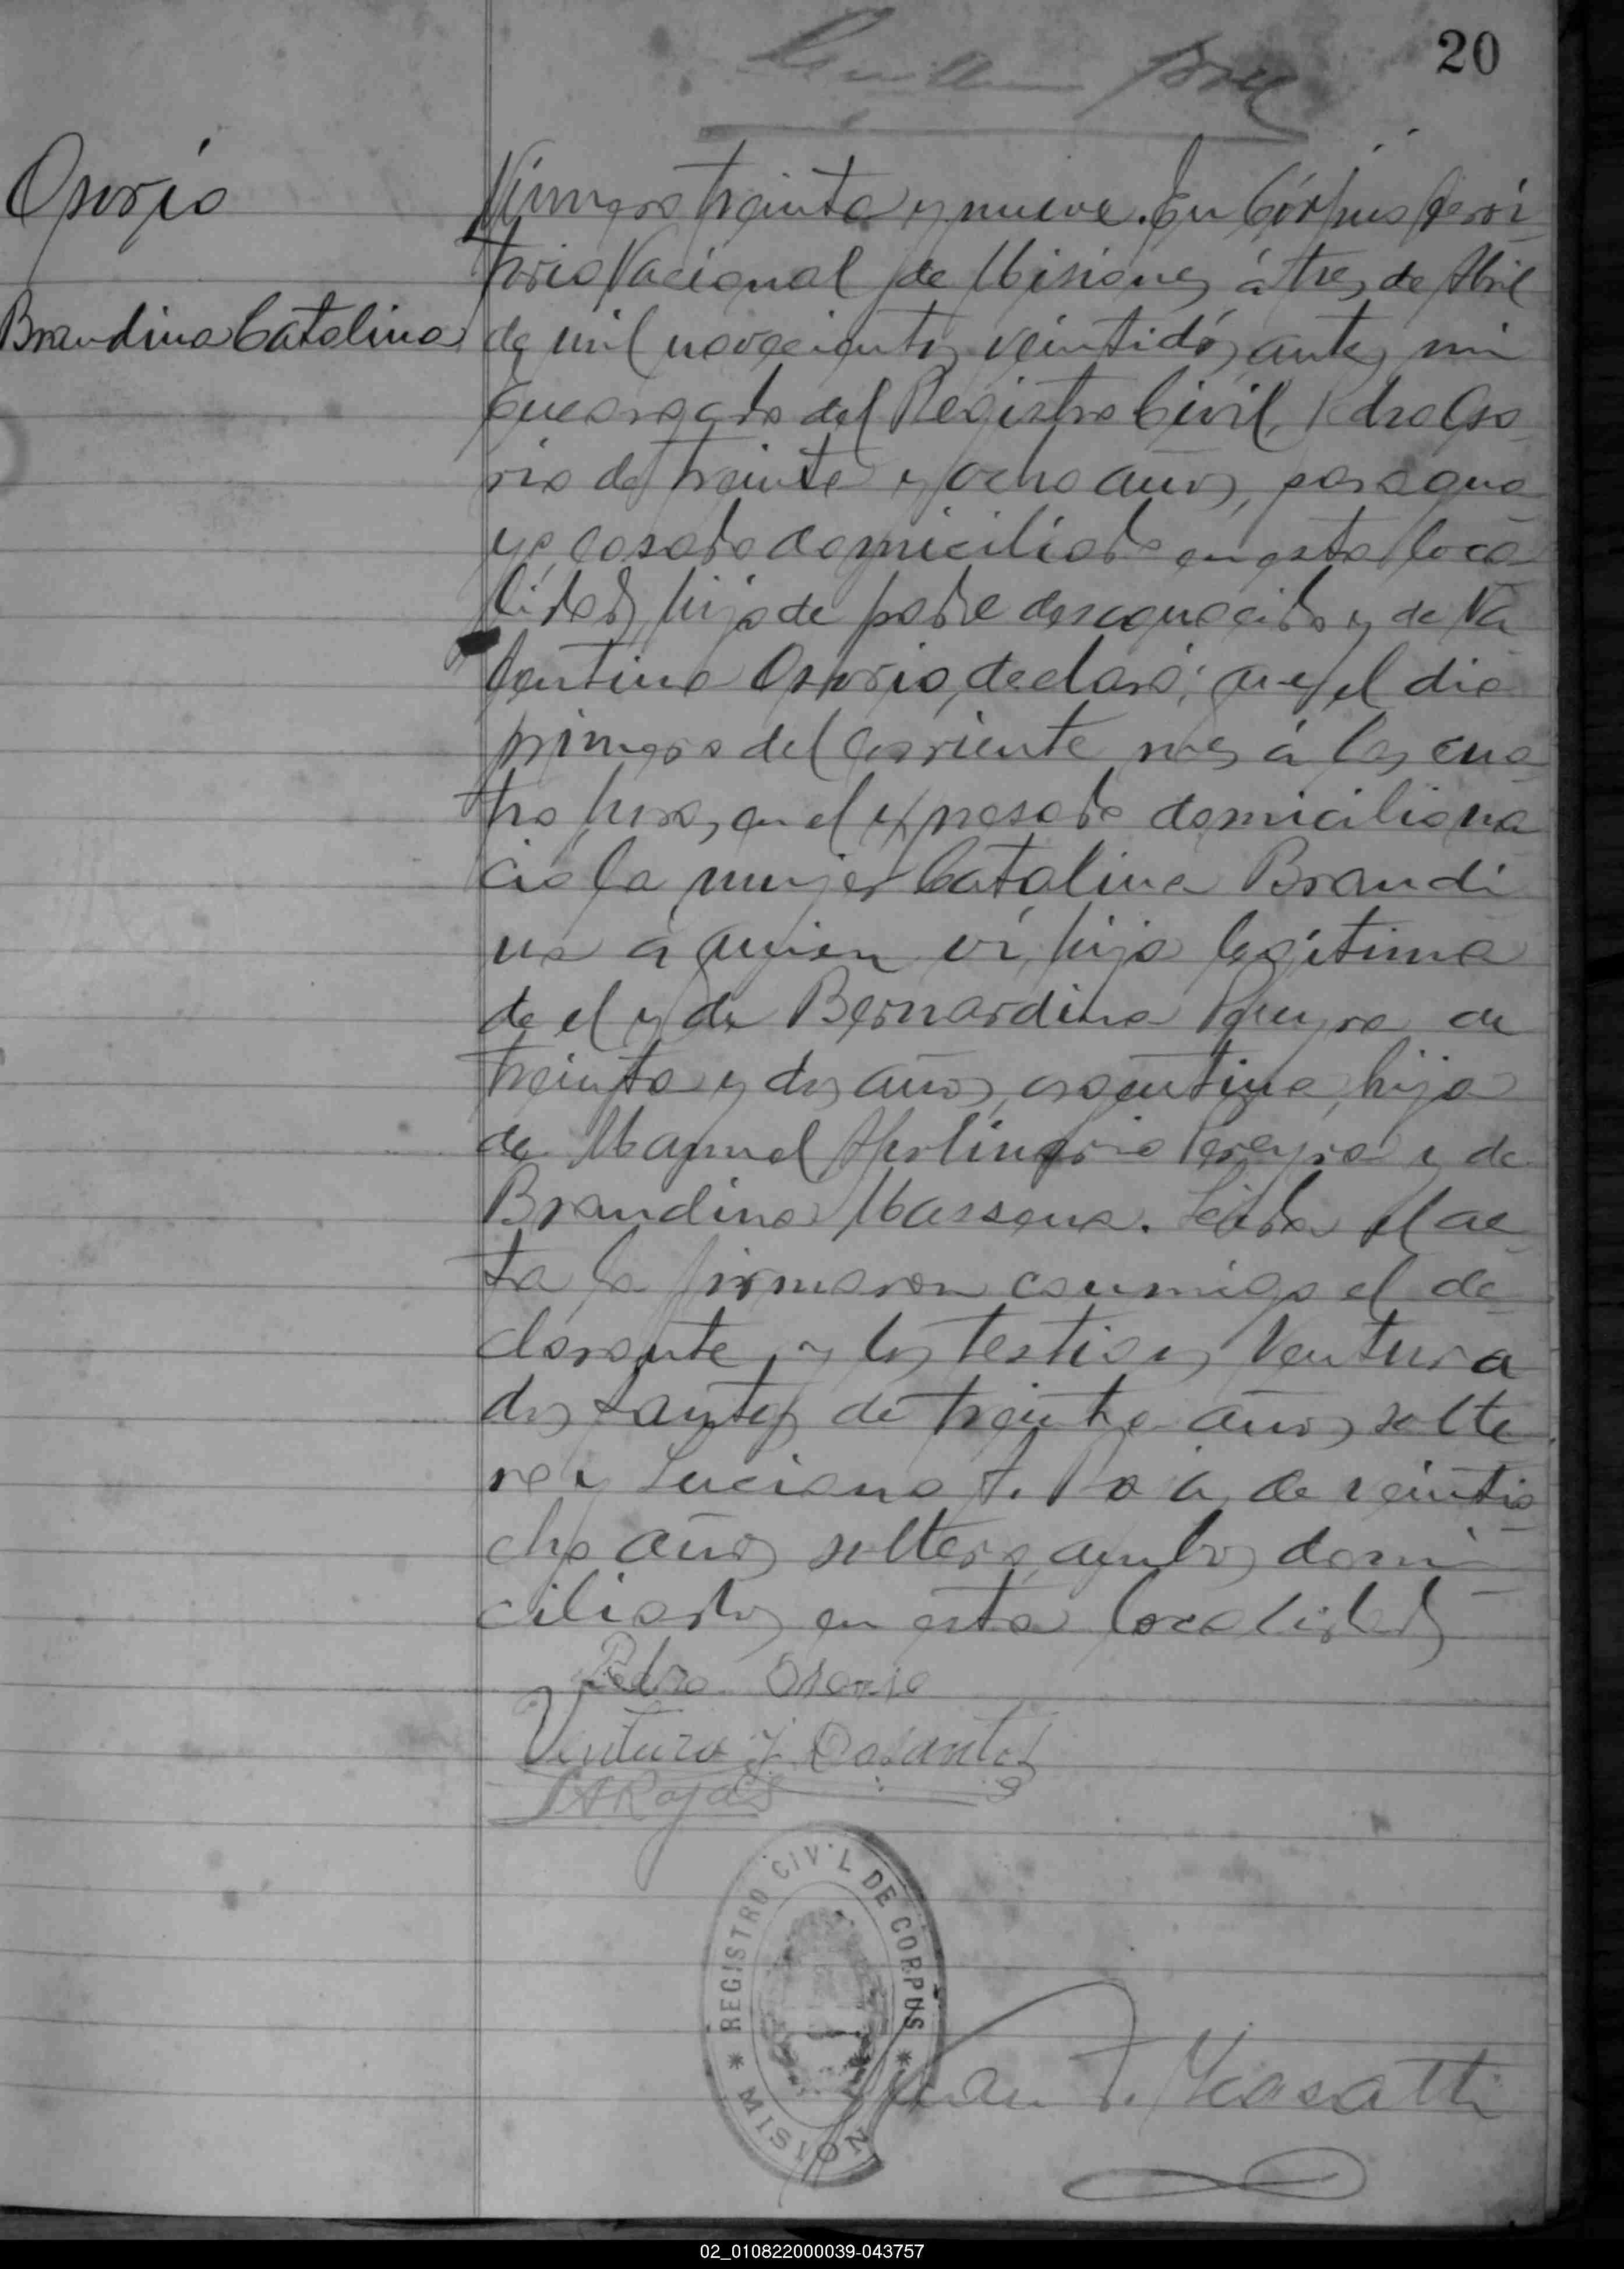 20
Osorio
Brandina Catalina
Número treinta y nueve. En Córpus Terri
torio Nacional de Misiones á tres de Abril
de mil novecientos veintidós, antes mi
Encargado del Registro Civil, Pedro Oso
rio de treinta y ocho años, paragua
yo, casado domiciliado en esta loca
lidad, hijo de padre desconocido y de Va
lentina Osorio, declaró: que el dia
primero del corriente mes á las cua
tro horas, en el expresado domicilio na
ció la mujer Catalina Brandi
na á quien ví, hija legítima
de el y de Bernardina Pereyra de
treinta y dos años, argentina, hija
de Manuel Pereyra y de
Brandina Massena. Leida el ac
ta la firmaron conmigo el de
clarante, y los testigos Ventura
dos Santos de treinta años, solte
ro y Luciano A. Rojas, de veintio
cho años, soltero, ambos domi
ciliados en esta localidad
Pedro Osorio
Ventura J. Dosantos
L A Rojas
REGISTRO CIVIL DE CORPUS * MISIONES *
Juan
02_010822000039-043757